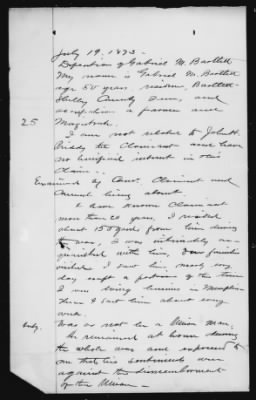 July 19. 1873 -
Deposition of Gabriel M. Bartlett
My name is Gabriel M. Bartlett
age 50 years, residence, Bartlett
Shelby County Tenn, and
occupation a farmer and
Magistrate.
25
I am not related to John H.
Priddy the Claimant and have
no beneficial interest in this
claim.
Examined by Com. Claimant and
Counsel being absent.
I have known Claimant
more than 20 years. I resided
about 150 yards from him during
the war, I was intimately acquainted
with him, our families
visited I saw him nearly every
day except a portion of the time
I was doing business in Memphis
then I saw him about every
week.
He was a Union man,
He remained at home during
the whole war and expressed to
me that his sentiments were
against the dismemberment
of the Union -